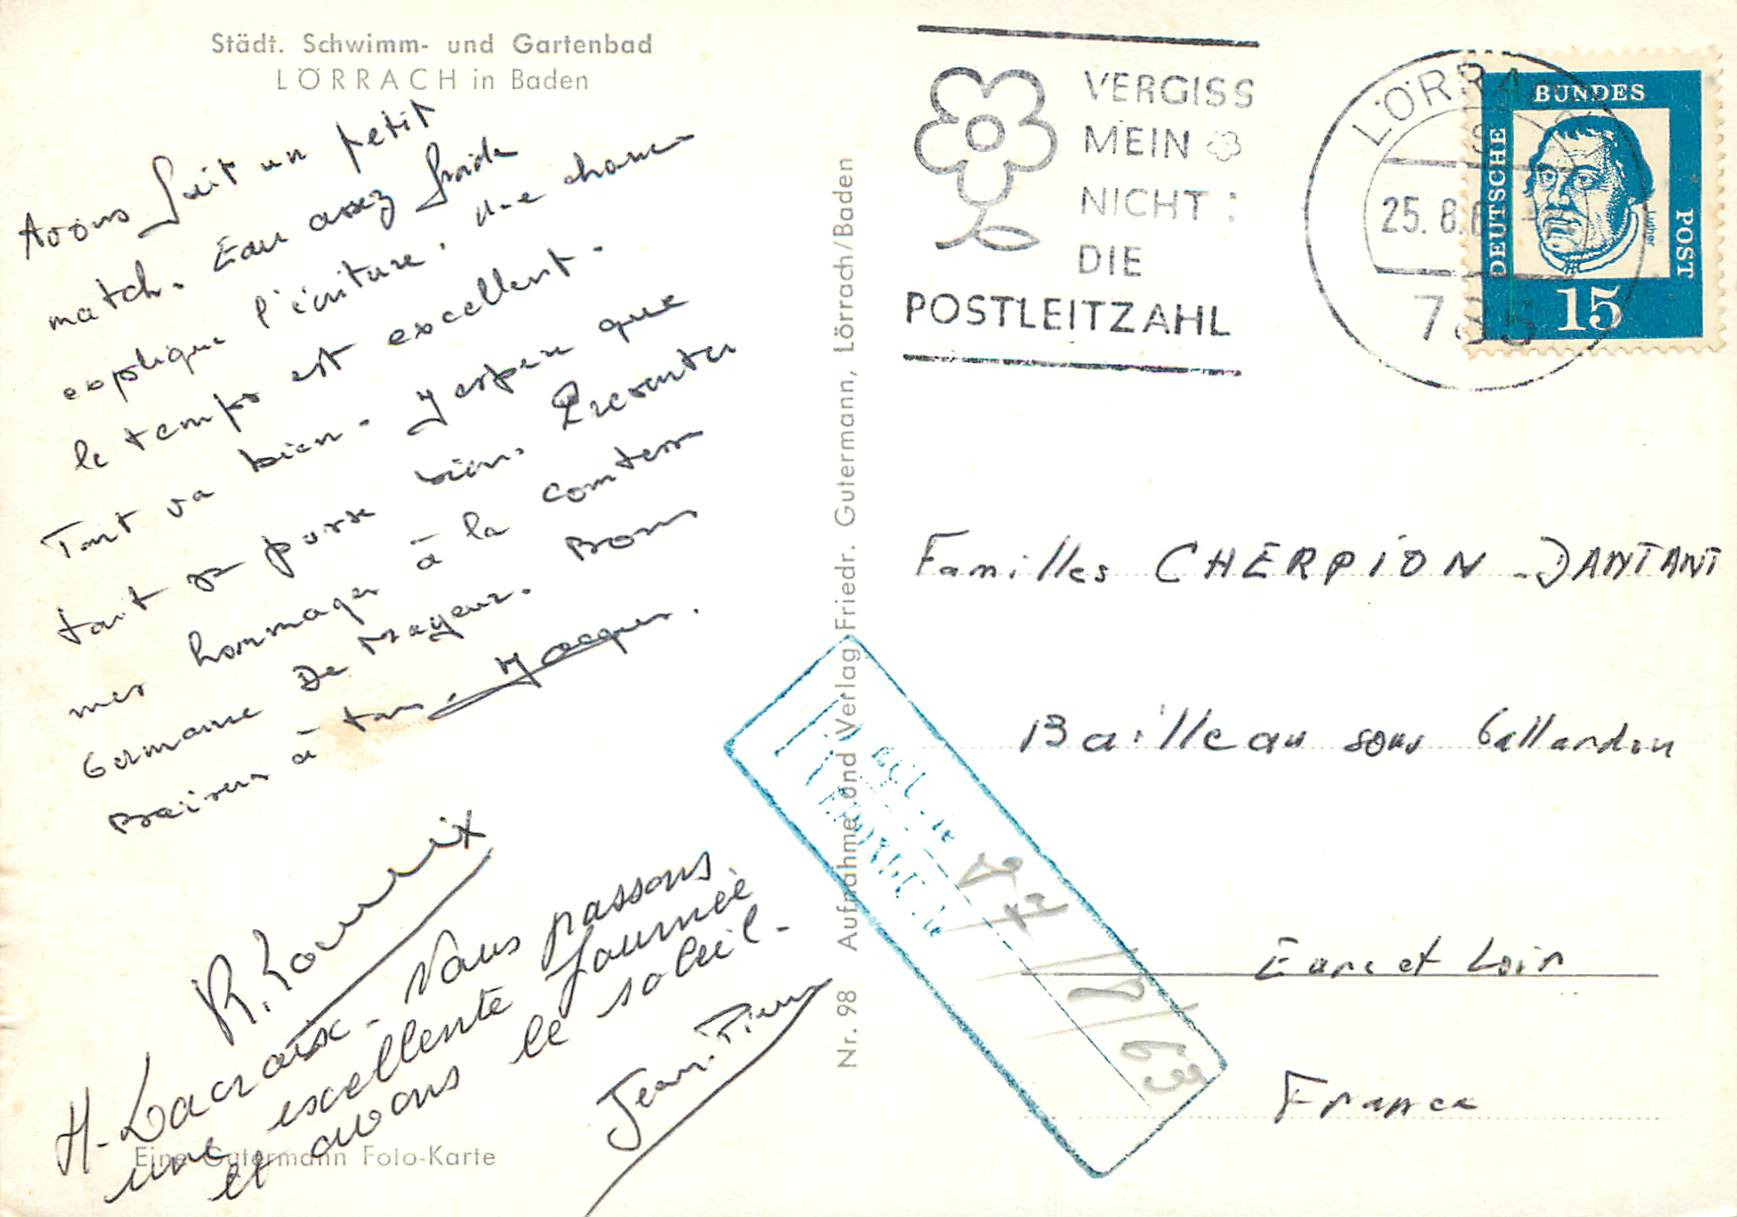 Städt. Schwimm- und Gartenbad
LÖRRACH in Baden
Avons fait un petit
match. Eau assez froide
explique l'écriture.
le temps est excellent.
Tout va bien. J'espère que
tout se passe bien. Presenter
mes hommages à la comtesse
Germaine De Mayeur. Bons
Baisers à tous. Jacques.
H. Lacroix. Nous passons
une excellente journée
et avons le soleil.
Jean-Pierre
Eine Gutermann Foto-Karte
Nr. 98 Aufnahme und Verlag Friedr. Gutermann, Lörrach/Baden
VERGISS
MEIN
NICHT:
DIE
POSTLEITZAHL
LÖRRA
25.8.6
785
DEUTSCHE
BUNDES
POST
Luther
15
Familles CHERPION-DANTANT
Bailleau sous Gallardon
Eure et Loir
France